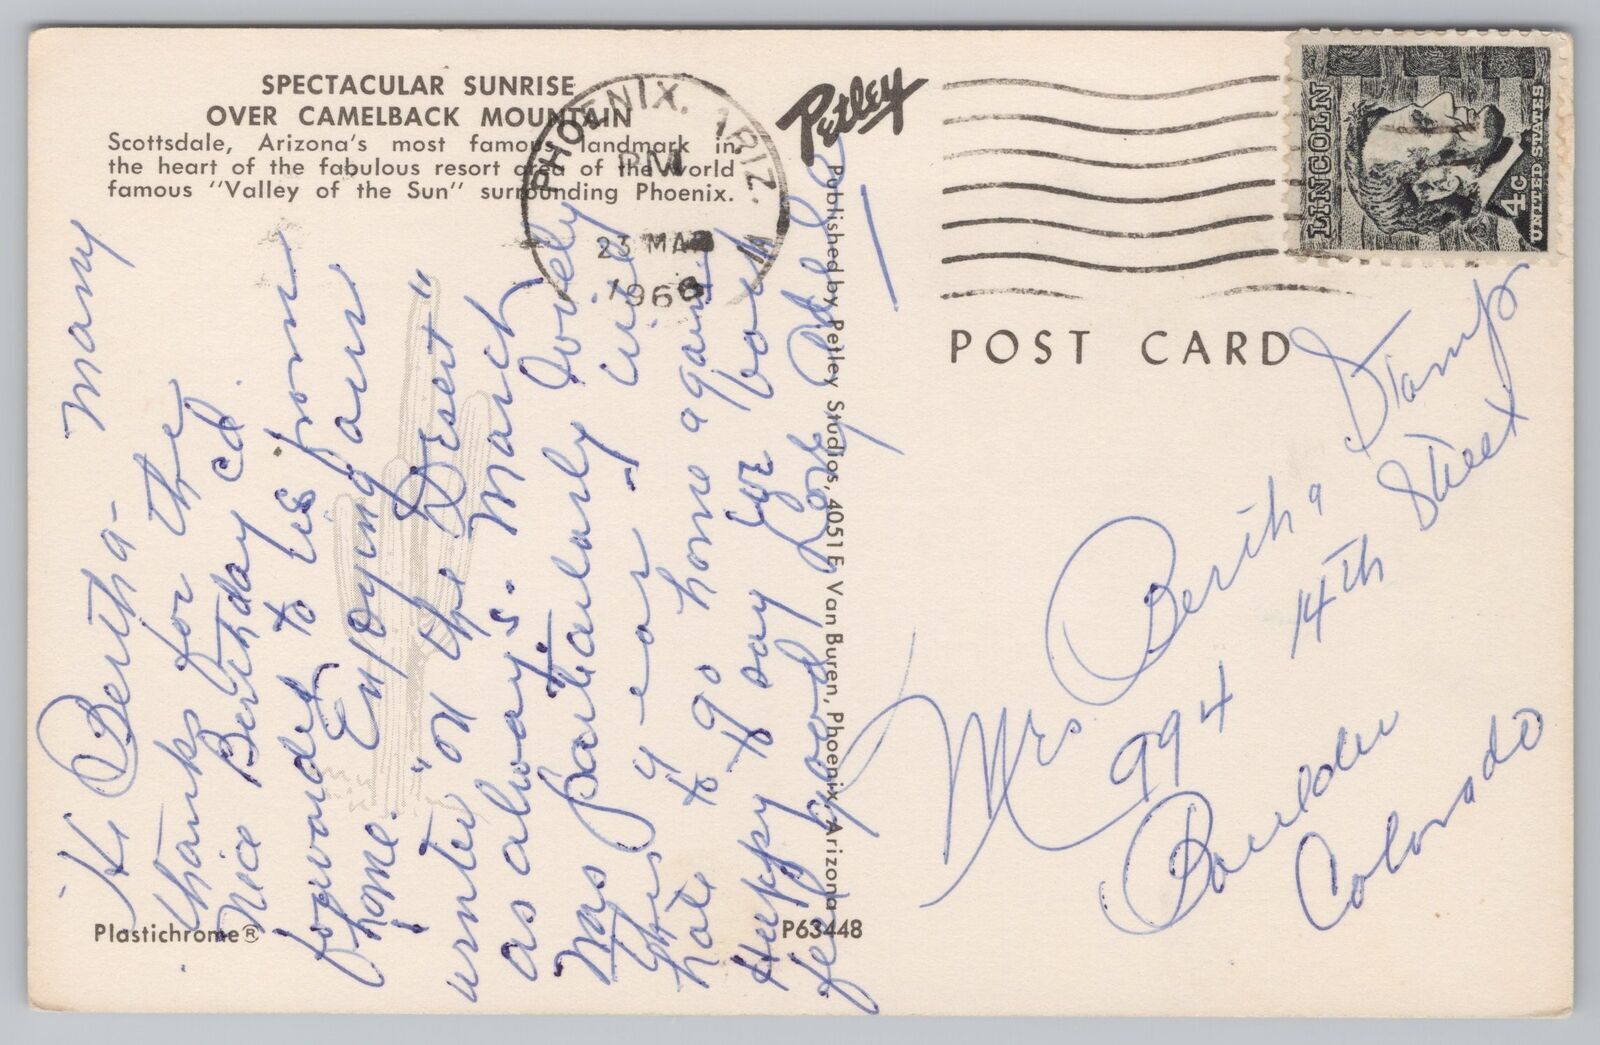 SPECTACULAR SUNRISE
OVER CAMELBACK MOUNTAIN
Scottsdale, Arizona's most famous landmark in
the heart of the fabulous resort area of the World
famous "Valley of the Sun" surrounding Phoenix.
PHOENIX, ARIZ.
PM
23 MAR
1966
Petley
LINCOLN
4c
UNITED STATES
POST CARD
Hi Bertha- Many
thanks for the
nice Birthday cd.
forwarded to us from
home. Enjoying our
winter "on the Desert"
as always. March
was particularly lovely
this year. Will
hate to go home again,
Happy to say we both
feel good. Love,
Published by Petley Studios, 4051 E. Van Buren, Phoenix, Arizona
Mrs Bertha Stamp
994 14th Street
Boulder
Colorado
Plastichrome®
P63448